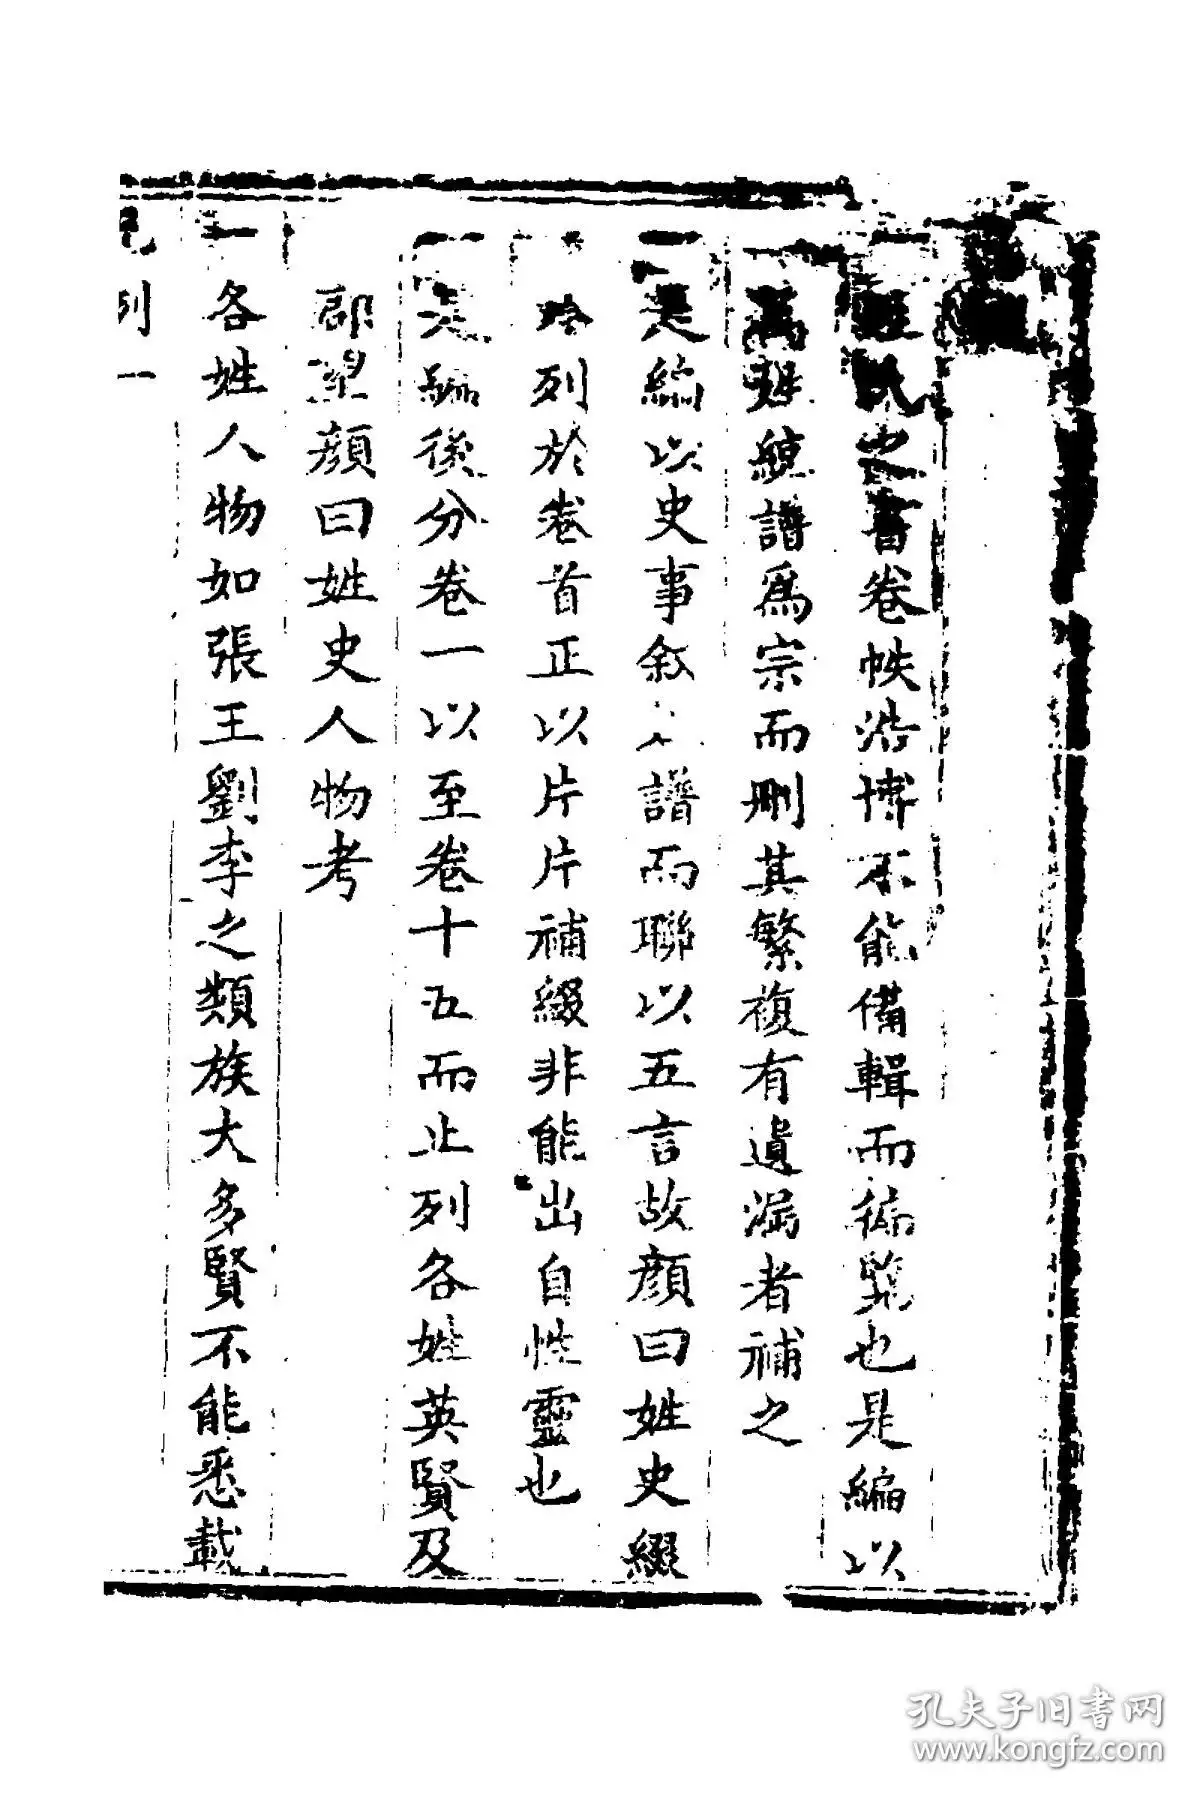 一姓氏之書卷帙浩博不能備輯而徧覽也是編以
萬姓統譜爲宗而刪其繁複有遺漏者補之
一是編以史事敘譜而聯以五言故顏曰姓史綴
列於卷首正以片片補綴非能出自性靈也
一是編後分卷一以至卷十五而止列各姓英賢及
郡望顏曰姓史人物考
一各姓人物如張王劉李之類族大多賢不能悉載
凡例一
孔夫子旧书网
www.kongfz.com